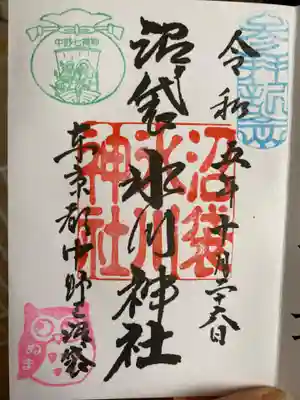 参拝記念
令和五年十月二十六日
沼袋氷川神社
沼袋
氷川
神社
中野七福神
東京都中野区沼袋
ぬま